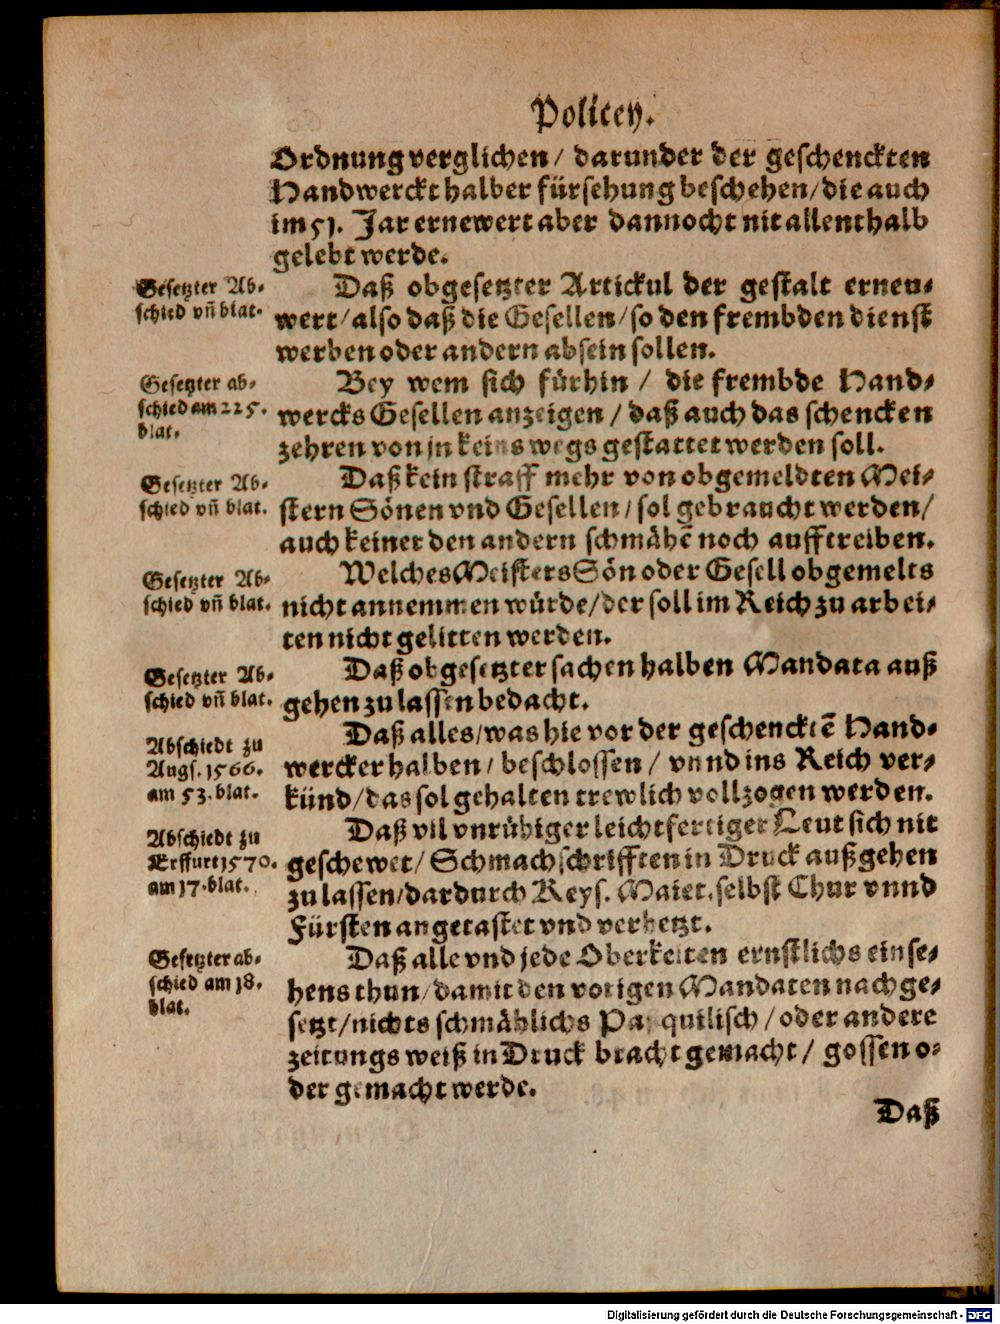 Policey.
Ordnung verglichen / darunder der geschenckten
Handwerckt halber fürsehung beschehen / die auch
im 51. Jar ernewert aber dannocht nit allenthalb
gelebt werde.
Gesetzter Ab-
schied vñ blat.
Daß obgesetzter Artickul der gestalt erneu-
wert / also daß die Gesellen / so den frembden dienst
werben oder andern absein sollen.
Gesetzter ab-
schied am 225.
blat.
Bey wem sich fürhin / die frembde Hand-
wercks Gesellen anzeigen / daß auch das schencken
zehren von jn keins wegs gestattet werden soll.
Gesetzter Ab-
schied vñ blat.
Daß kein straff mehr von obgemeldten Mei-
stern Sönen vnd Gesellen / sol gebraucht werden /
auch keiner den andern schmähẽ noch aufftreiben.
Gesetzter Ab-
schied vñ blat.
Welches Meisters Sön oder Gesell obgemelts
nicht annemmen würde / der soll im Reich zu arbei-
ten nicht gelitten werden.
Gesetzter Ab-
schied vñ blat.
Daß obgesetzter sachen halben Mandata auß
gehen zu lassen bedacht.
Abschiedt zu
Augs. 1566.
am 53. blat.
Daß alles / was hie vor der geschencktẽ Hand-
wercker halben / beschlossen / vnnd ins Reich ver-
künd / das sol gehalten trewlich vollzogen werden.
Abschiedt zu
Erffurt 1570.
am 17. blat.
Daß vil vnrühiger leichtfertiger Leut sich nit
geschewet / Schmachschrifften in Druck auß gehen
zu lassen / dardurch Keys. Maiet. selbst Chur vnnd
Fürsten angetastet vnd verhetzt.
Gesetzter ab-
schied am 18.
blat.
Daß alle vnd jede Oberkeiten ernstlichs einse-
hens thun / damit den vorigen Mandaten nachge-
setzt / nichts schmählichs Pasquilisch / oder andere
zeitungs weiß in Druck bracht gemacht / gossen o-
der gemacht werde.
Daß
Digitalisierung gefördert durch die Deutsche Forschungsgemeinschaft - DFG